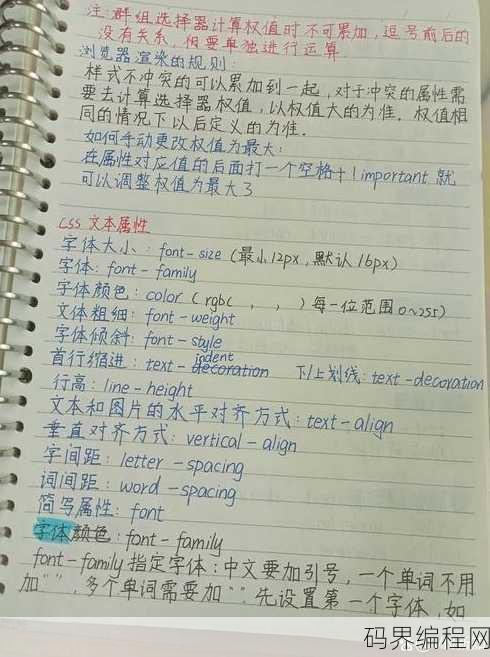 注：群组选择器计算权值时不可累加，逗号前后的
没有关系，相要单独进行运算
浏览器渲染的规则：
样式不冲突的可以累加到一起，对于冲突的属性需
要去计算选择器权值，以权值大的为准．权值相
同的情况下以后定义的为准．
如何手动更改权值为最大：
在属性对应值的后面打一个空格+!important 就
可以调整权值为最大了
CSS 文本属性
字体大小：font-size（最小12px，默认16px）
字体：font-family
字体颜色：color（rgb( , , ) 每一位范围0~255）
文体粗细：font-weight
字体倾斜：font-style
首行缩进：text-indent decoration 下/上划线：text-decoration
行高：line-height
文本和图片的水平对齐方式：text-align
垂直对齐方式：vertical-align
字间距：letter-spacing
词间距：word-spacing
简写属性：font
字体颜色：font-family
font-family指定字体：中文要加引号，一个单词不用
加""，多个单词需要加"".先设置第一个字体，如
码界编程网